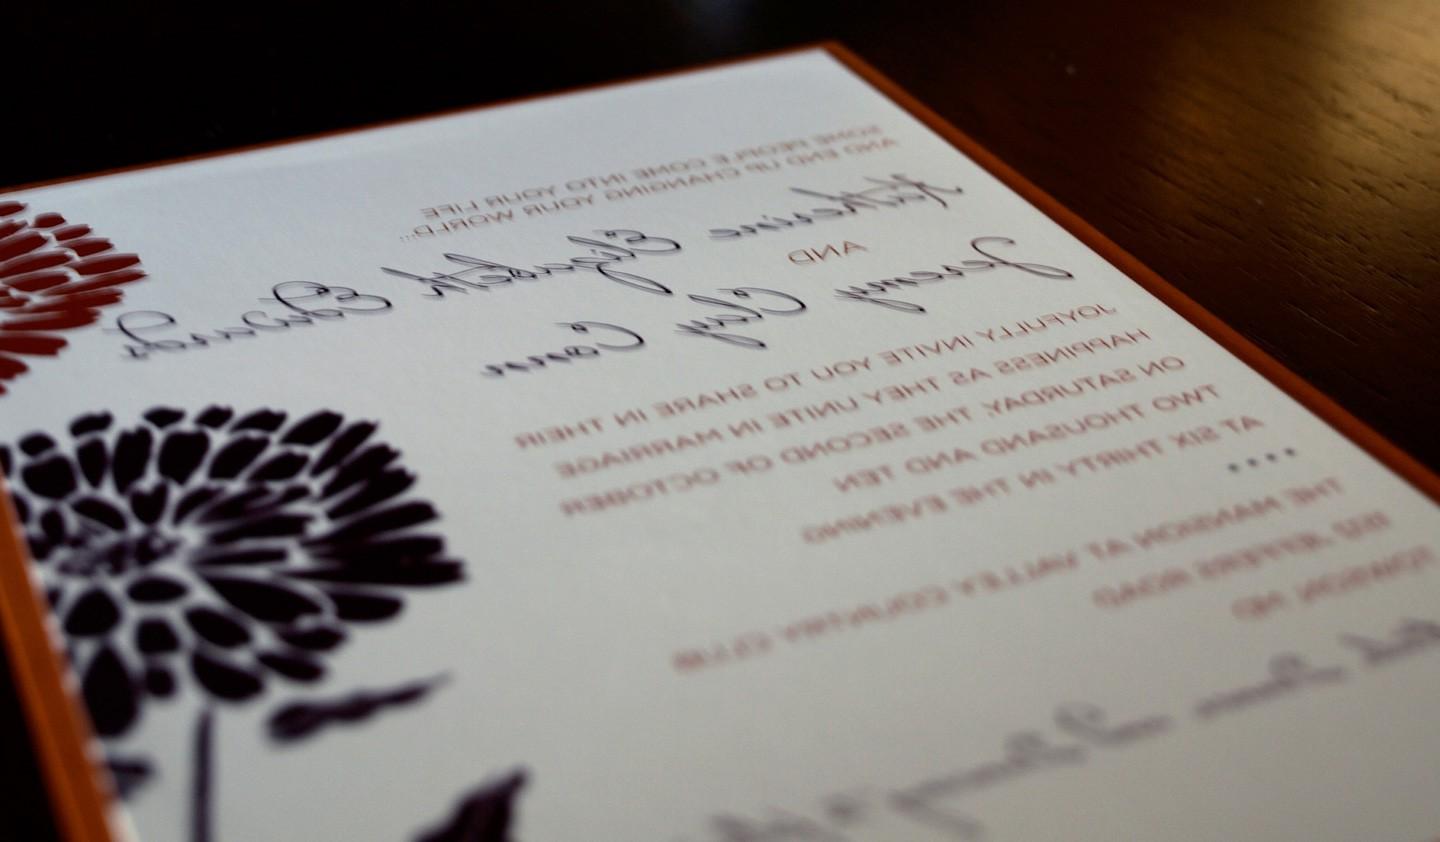 SOME PEOPLE COME INTO YOUR LIFE
AND END UP CHANGING YOUR WORLD...
Katherine Elizabeth Edwards
AND
Jeremy Clay
JOYFULLY INVITE YOU TO SHARE IN THEIR
HAPPINESS AS THEY UNITE IN MARRIAGE
ON SATURDAY, THE SECOND OF OCTOBER
TWO THOUSAND AND TEN
AT SIX THIRTY IN THE EVENING
THE MANSION AT VALLEY COUNTRY CLUB
JEFFERS ROAD
TOWSON MD